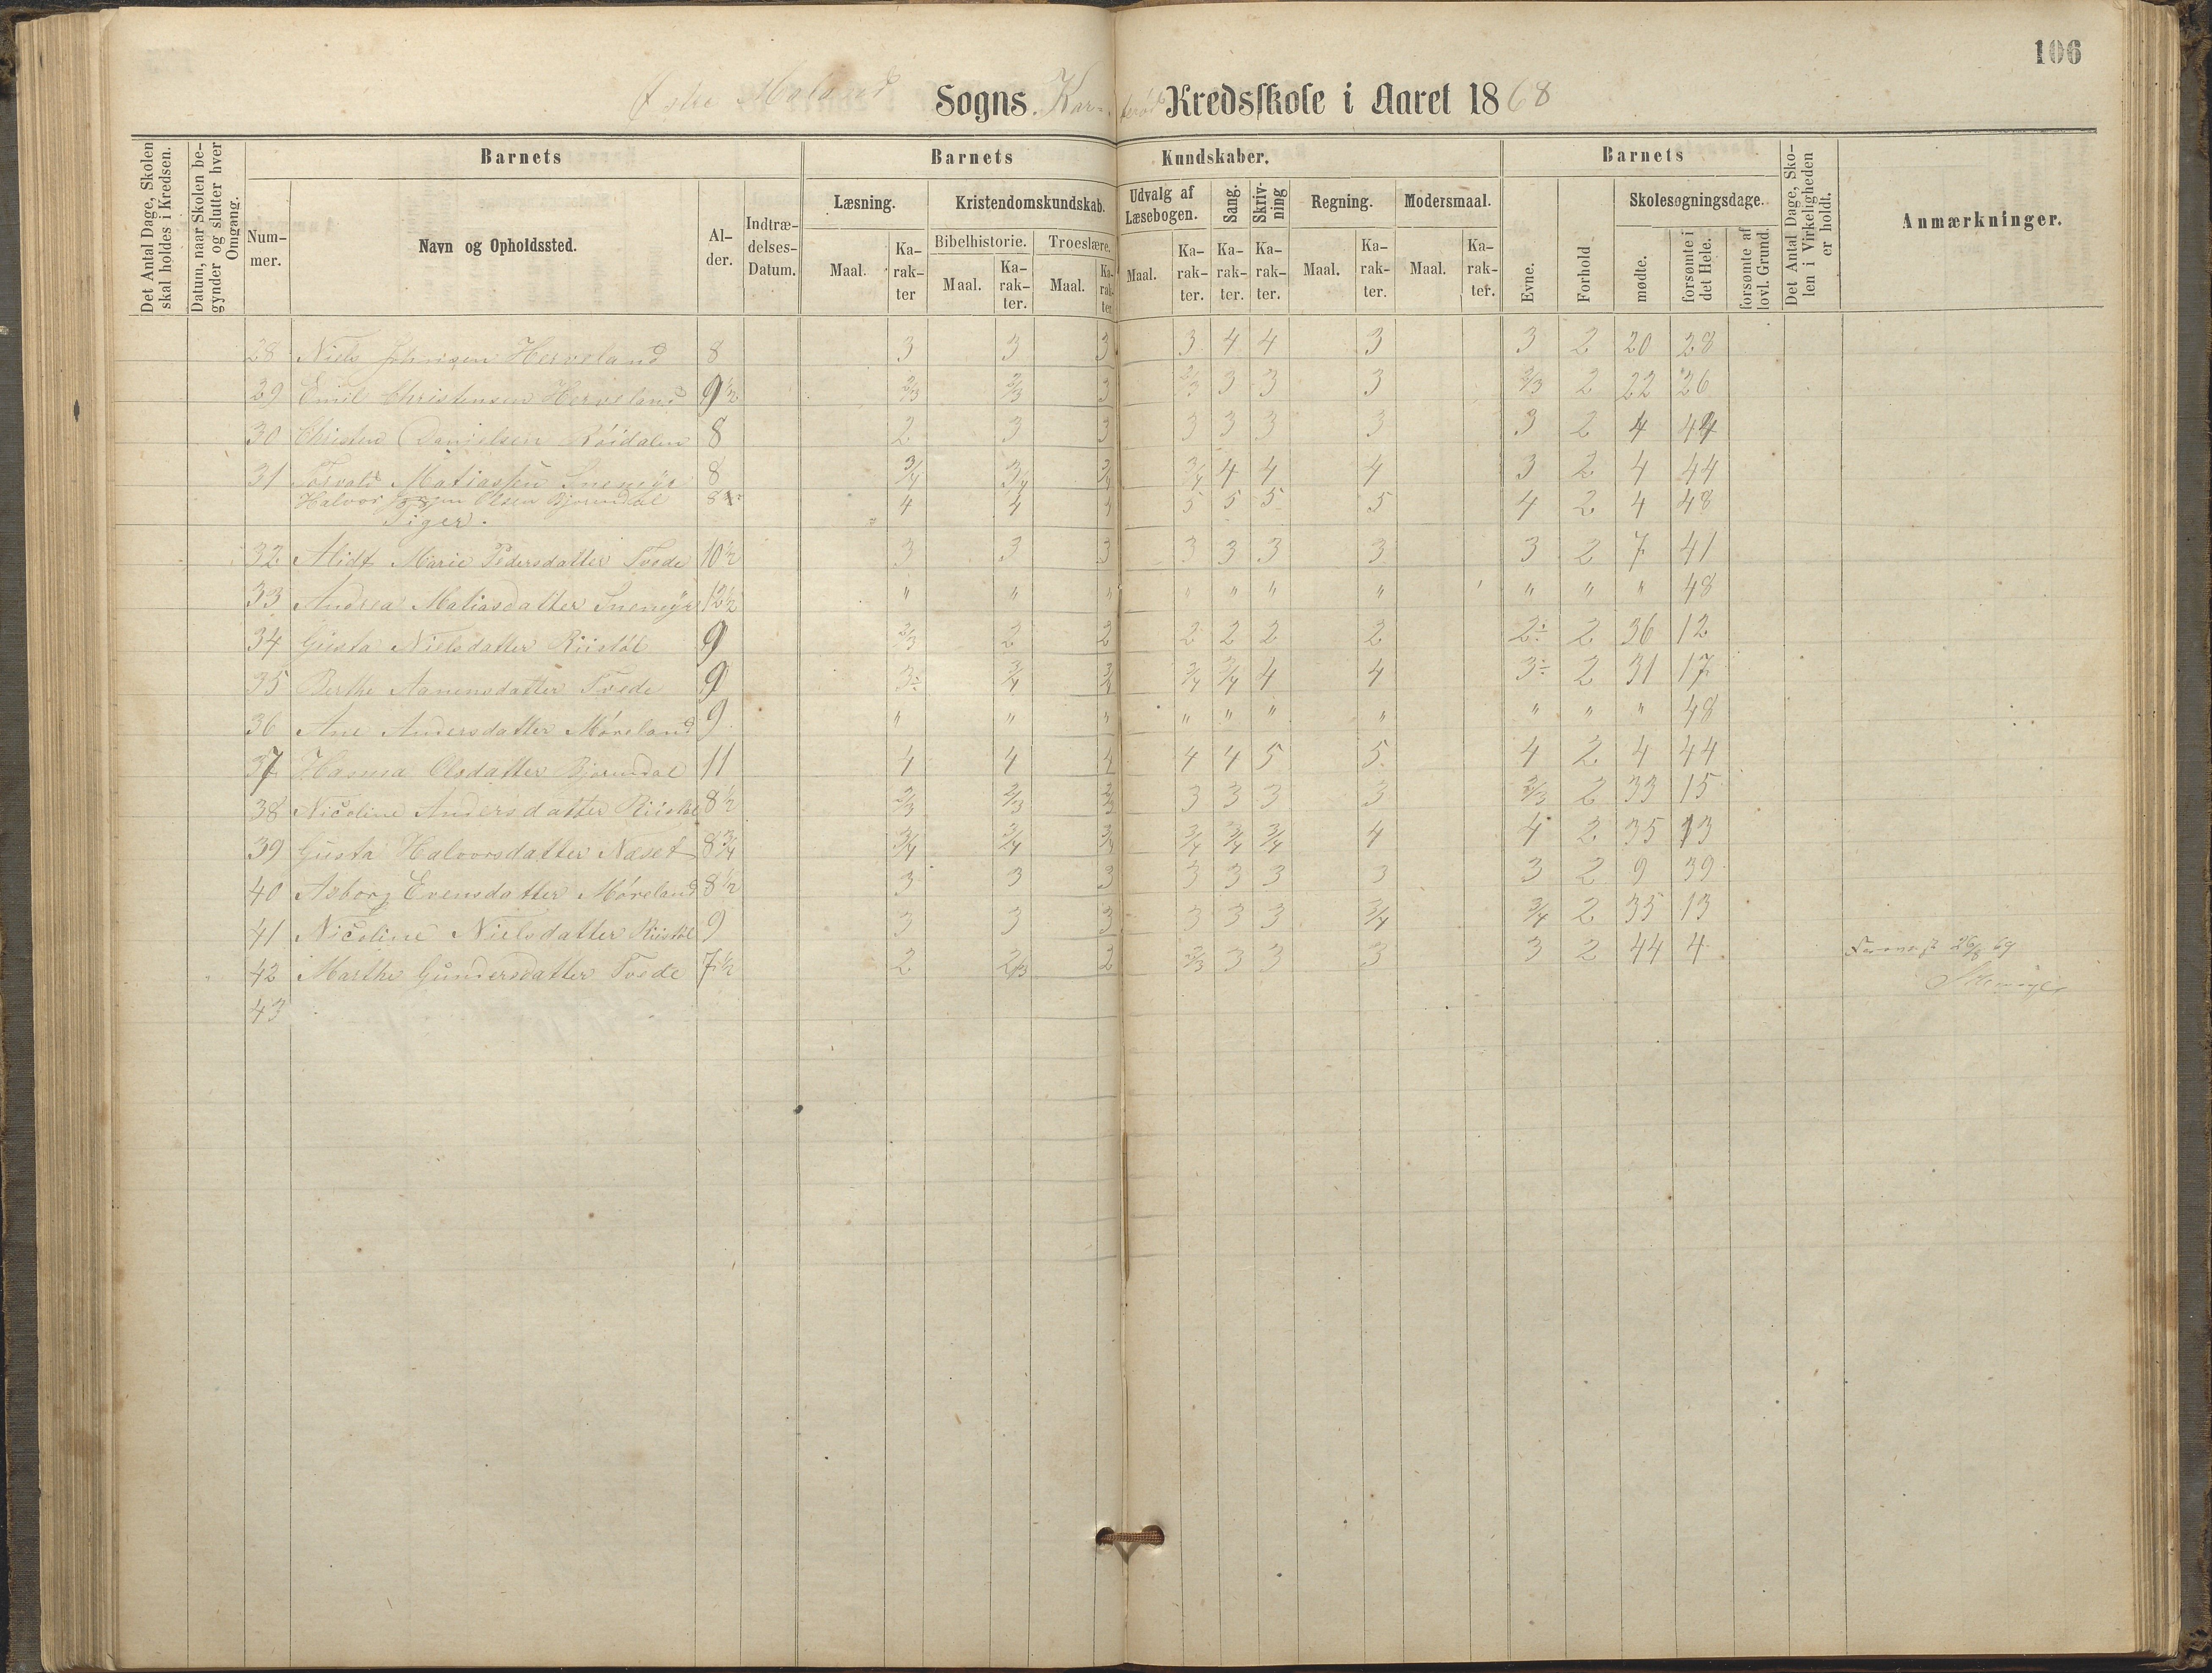 106
Østre Moland Sogns Kredsskole i Aaret 1868
Det Antal Dage, Skolen skal holdes i Kredsen.
Datum, naar Skolen begynder og slutter hver Omgang.
Barnets
Barnets Kundskaber.
Barnets
Det Antal Dage, Skolen i Virkeligheden er holdt.
Anmærkninger.
Nummer.
Navn og Opholdssted.
Alder.
Indtrædelses-Datum.
Læsning.
Kristendomskundskab.
Udvalg af Læsebogen.
Sang.
Skrivning
Regning.
Modersmaal.
Evne.
Forhold
Skolesøgningsdage.
Bibelhistorie.
Troeslære.
Maal. Karakter
Maal. Karakter.
Maal. Karakter.
Maal. Karakter.
Karakter.
Karakter.
Maal. Karakter.
Maal. Karakter.
mødte.
forsømte i det Hele.
forsømte af lovl. Grund.
28 Niels Johnsen Herveland 8 3 3 3 3 4 4 3 3 2 20 28
29 Emil Christensen Herveland 9½ 2/3 2/3 3 2/3 3 3 3 2/3 2 22 26
30 Christen Danielsen Röidalen 8 2 3 3 3 3 3 3 3 2 4 44
31 Torvald Matiassen Snemyr 8 3/4 3/4 3/4 3/4 4 4 4 3 2 4 44
Halvor Olsen Bjorndal 8 4 4 4 5 5 5 5 4 2 4 48
Tiger.
32 Alidt Marie Pedersdatter Tvede 10½ 3 3 3 3 3 3 3 3 2 7 41
33 Andrea Matiasdatter Snemyr 12½ " " " " " " " " " " 48
34 Gusta Nielsdatter Riistöl 9 2/3 2 2 2 2 2 2 2÷ 2 36 12
35 Berthe Aanensdatter Tvede 9 3÷ 3/4 3/4 3/4 3/4 4 4 3÷ 2 31 17
36 Ane Andersdatter Möreland 9 " " " " " " " " " " 48
37 Hasma Olsdatter Bjorndal 11 4 4 4 4 4 5 5 4 2 4 44
38 Nicoline Andersdatter Riistöl 8½ 2/3 2/3 2/3 3 3 3 3 2/3 2 33 15
39 Gusta Halvorsdatter Næset 8¾ 3/4 3/4 3/4 3/4 3/4 3/4 4 4 2 35 13
40 Asborg Evensdatter Möreland 8½ 3 3 3 3 3 3 3 3 2 9 39
41 Nicoline Nielsdatter Riistöl 9 3 3 3 3 3 3 3/4 3/4 2 35 13
42 Marthe Gundersdatter Tvede 7½ 2 2/3 2 2/3 3 3 3 3 2 44 4
43